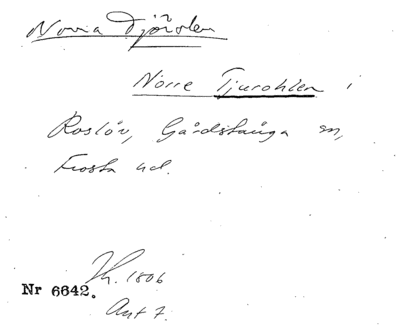 Norra Djörslen
Norre Tjurohlen i
Roslöv, Gårdstånga sn,
Frosta hd.
Jh. 1806
Nr 6642.
Akt 7.